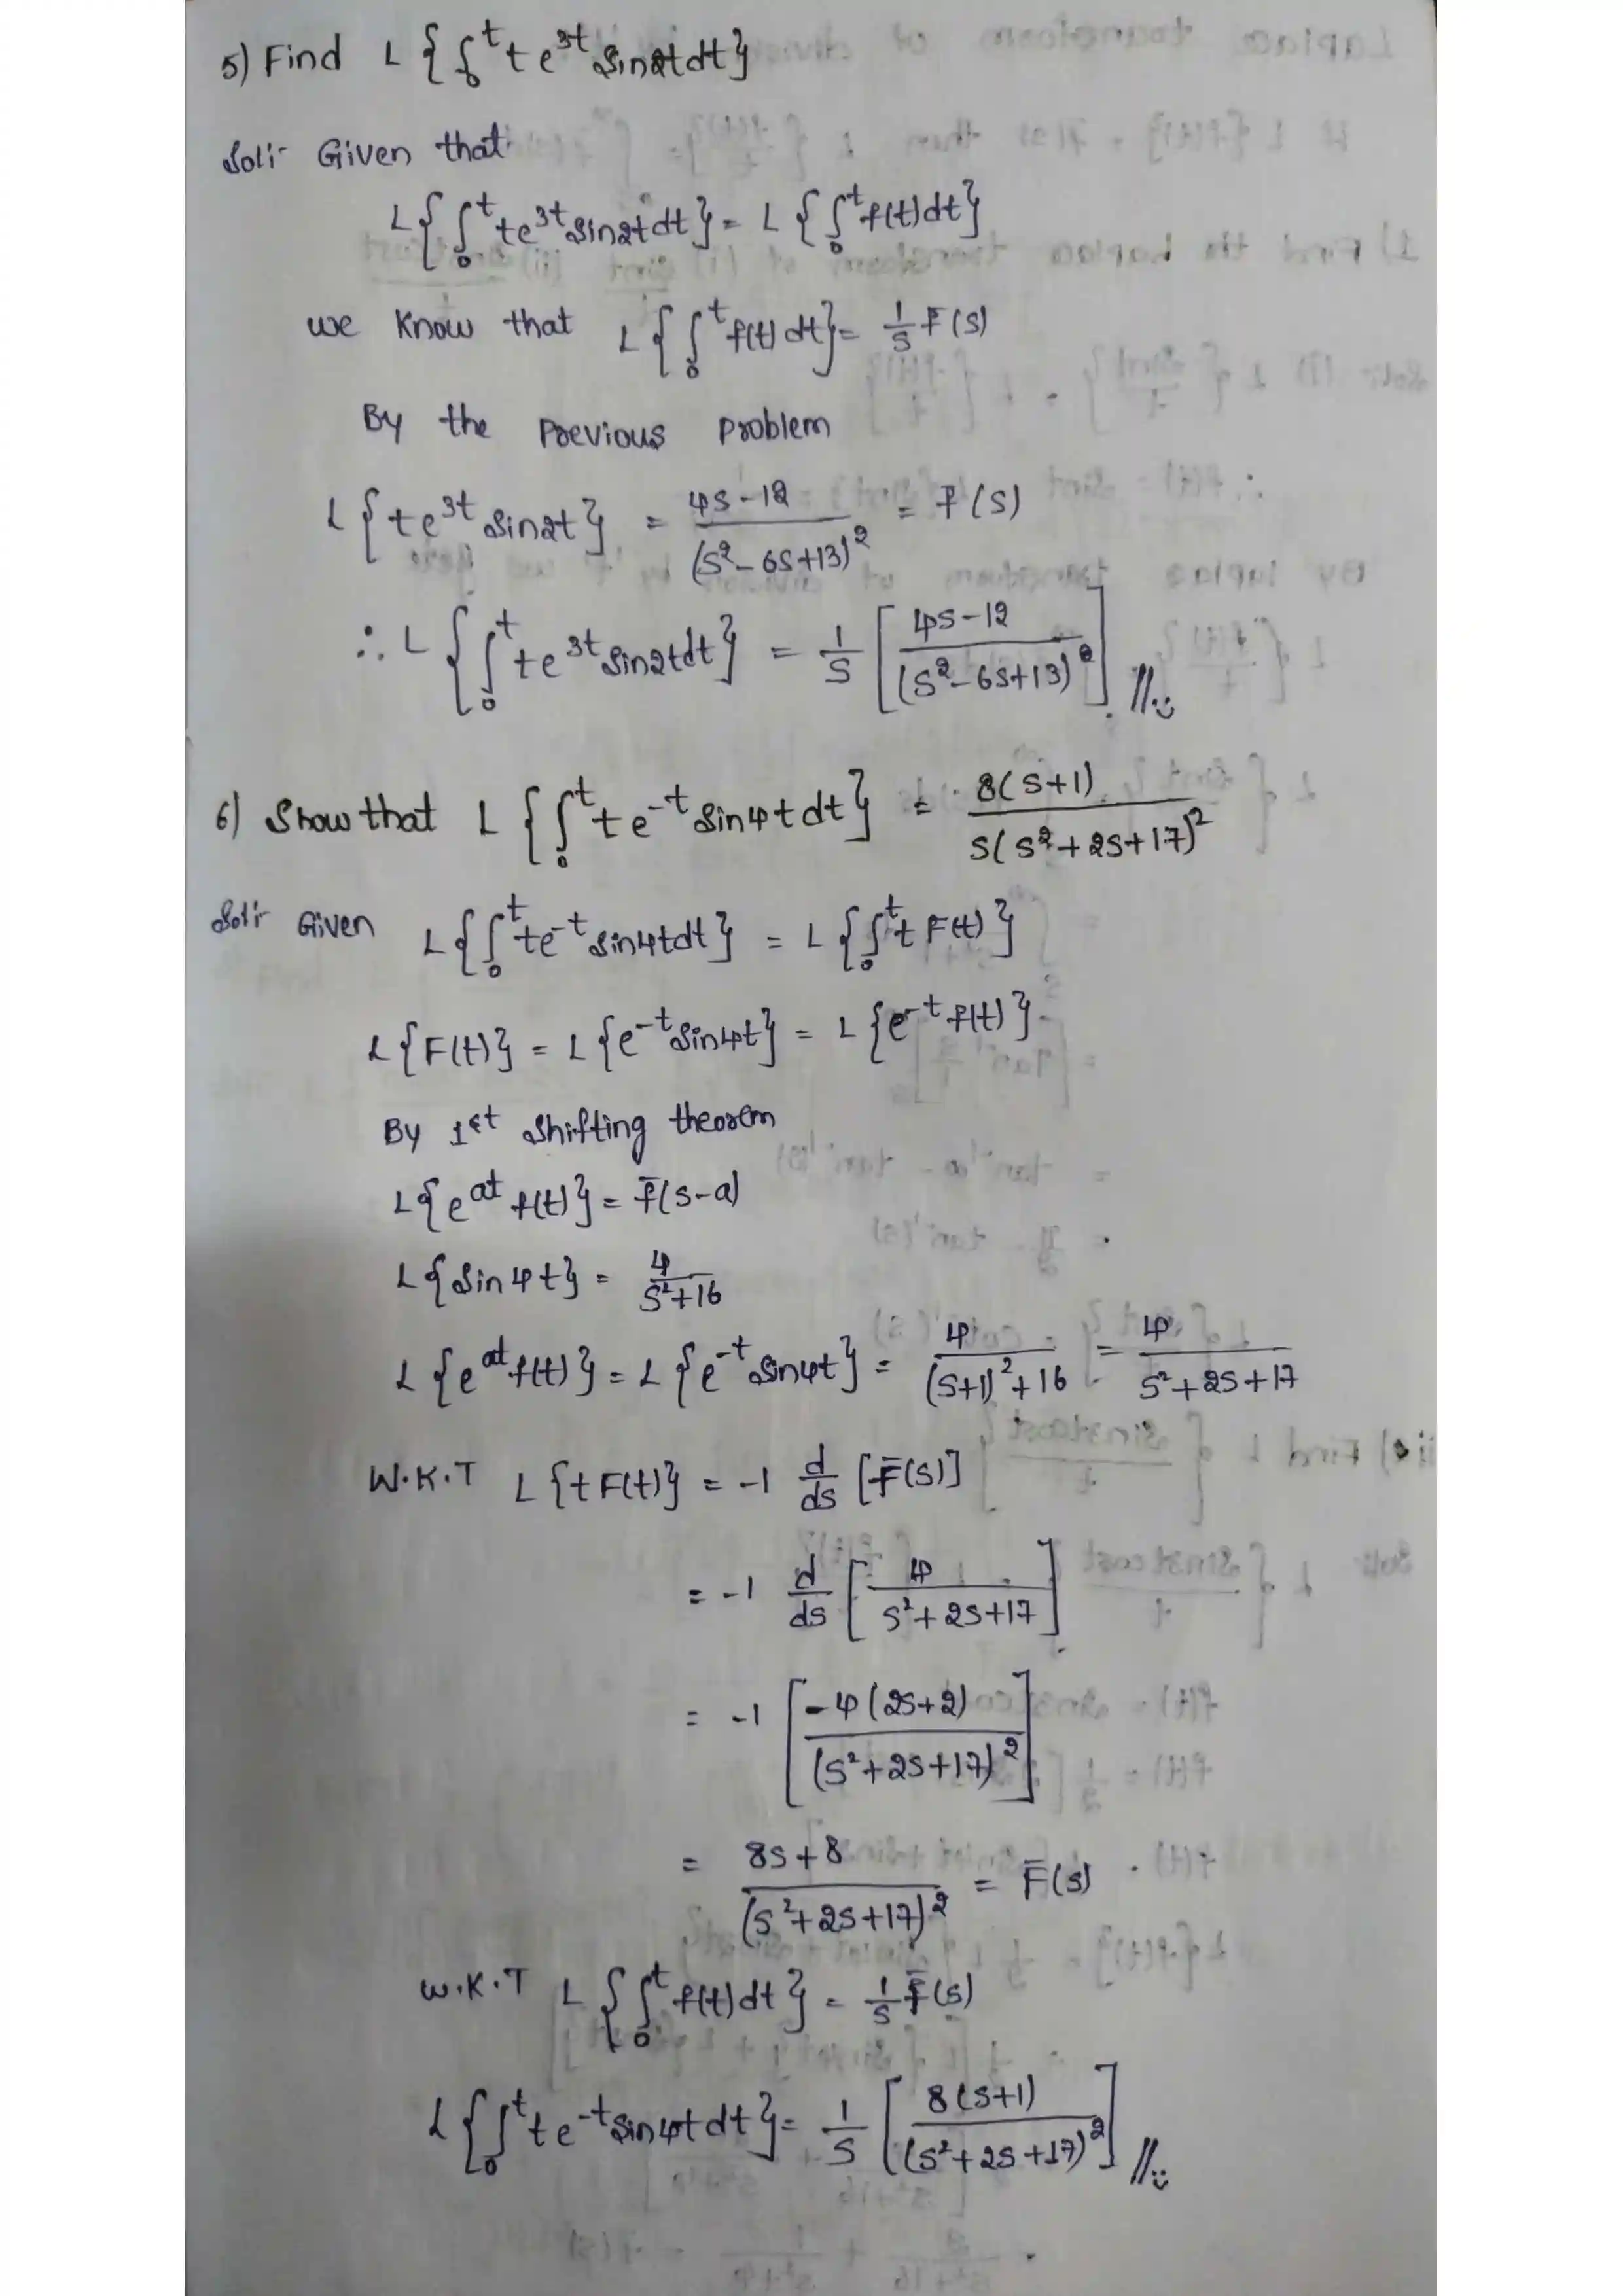 5) Find L{∫₀ᵗ t e³ᵗ sin2t dt}
Sol:- Given that
L{∫₀ᵗ te³ᵗ sin2t dt} = L{∫₀ᵗ f(t)dt}
we know that L{∫₀ᵗ f(t) dt} = 1/s f̄(s)
By the previous problem
L{te³ᵗ sin2t} = (4s-12)/(s²-6s+13)² = f̄(s)
∴ L{∫₀ᵗ te³ᵗ sin2tdt} = 1/s [(4s-12)/(s²-6s+13)²] //
6) Show that L{∫₀ᵗ t e⁻ᵗ sin4t dt} = 8(s+1)/s(s²+2s+17)²
Sol:- Given L{∫₀ᵗ te⁻ᵗ sin4tdt} = L{∫₀ᵗ t F(t)}
L{F(t)} = L{e⁻ᵗ sin4t} = L{e⁻ᵗ f(t)}
By 1st shifting theorem
L{eᵃᵗ f(t)} = f̄(s-a)
L{sin4t} = 4/(s²+16)
L{eᵃᵗ f(t)} = L{e⁻ᵗ sin4t} = 4/((s+1)²+16) = 4/(s²+2s+17)
W.K.T L{t F(t)} = -1 d/ds [F̄(s)]
= -1 d/ds [4/(s²+2s+17)]
= -1 [-4(2s+2)/(s²+2s+17)²]
= (8s+8)/(s²+2s+17)² = F̄(s)
W.K.T L{∫₀ᵗ f(t)dt} = 1/s f̄(s)
L{∫₀ᵗ te⁻ᵗ sin4t dt} = 1/s [8(s+1)/(s²+2s+17)²] //